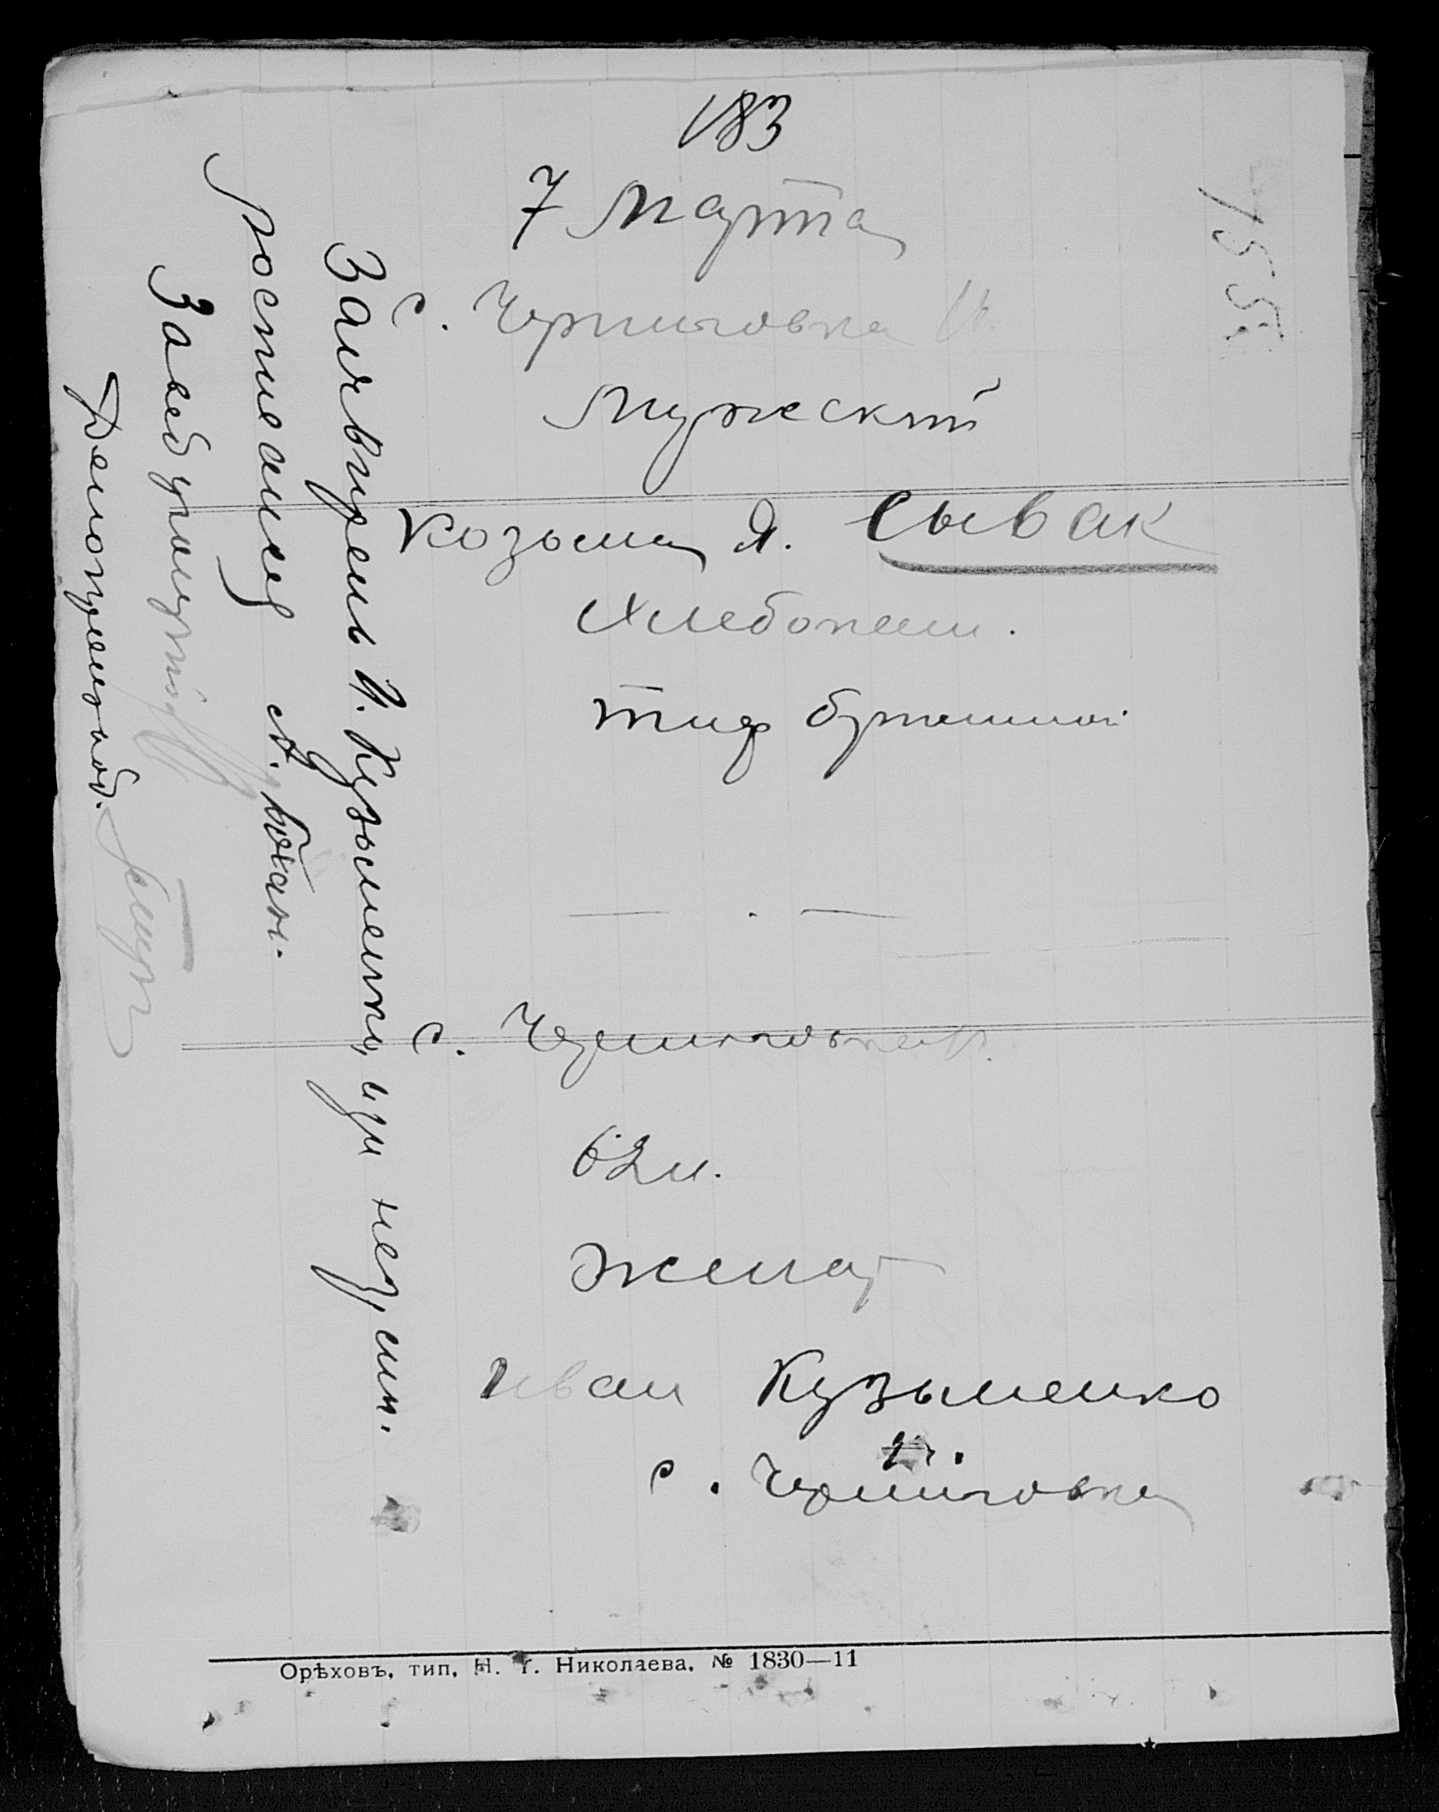 183
7 Марта
155
с. Черниговка
Мужской
Козьма Я. Сывак
Хлебопаш.
тиф брюшной
с. Черниговка
62 л.
женат
Иван Кузьменко
с. Черниговка
Заявитель И. Кузьменко, изм
расписался А.
Заведующий
Делопроизвод.
Орѣховъ, тип. Н. Николаева. № 1830—11